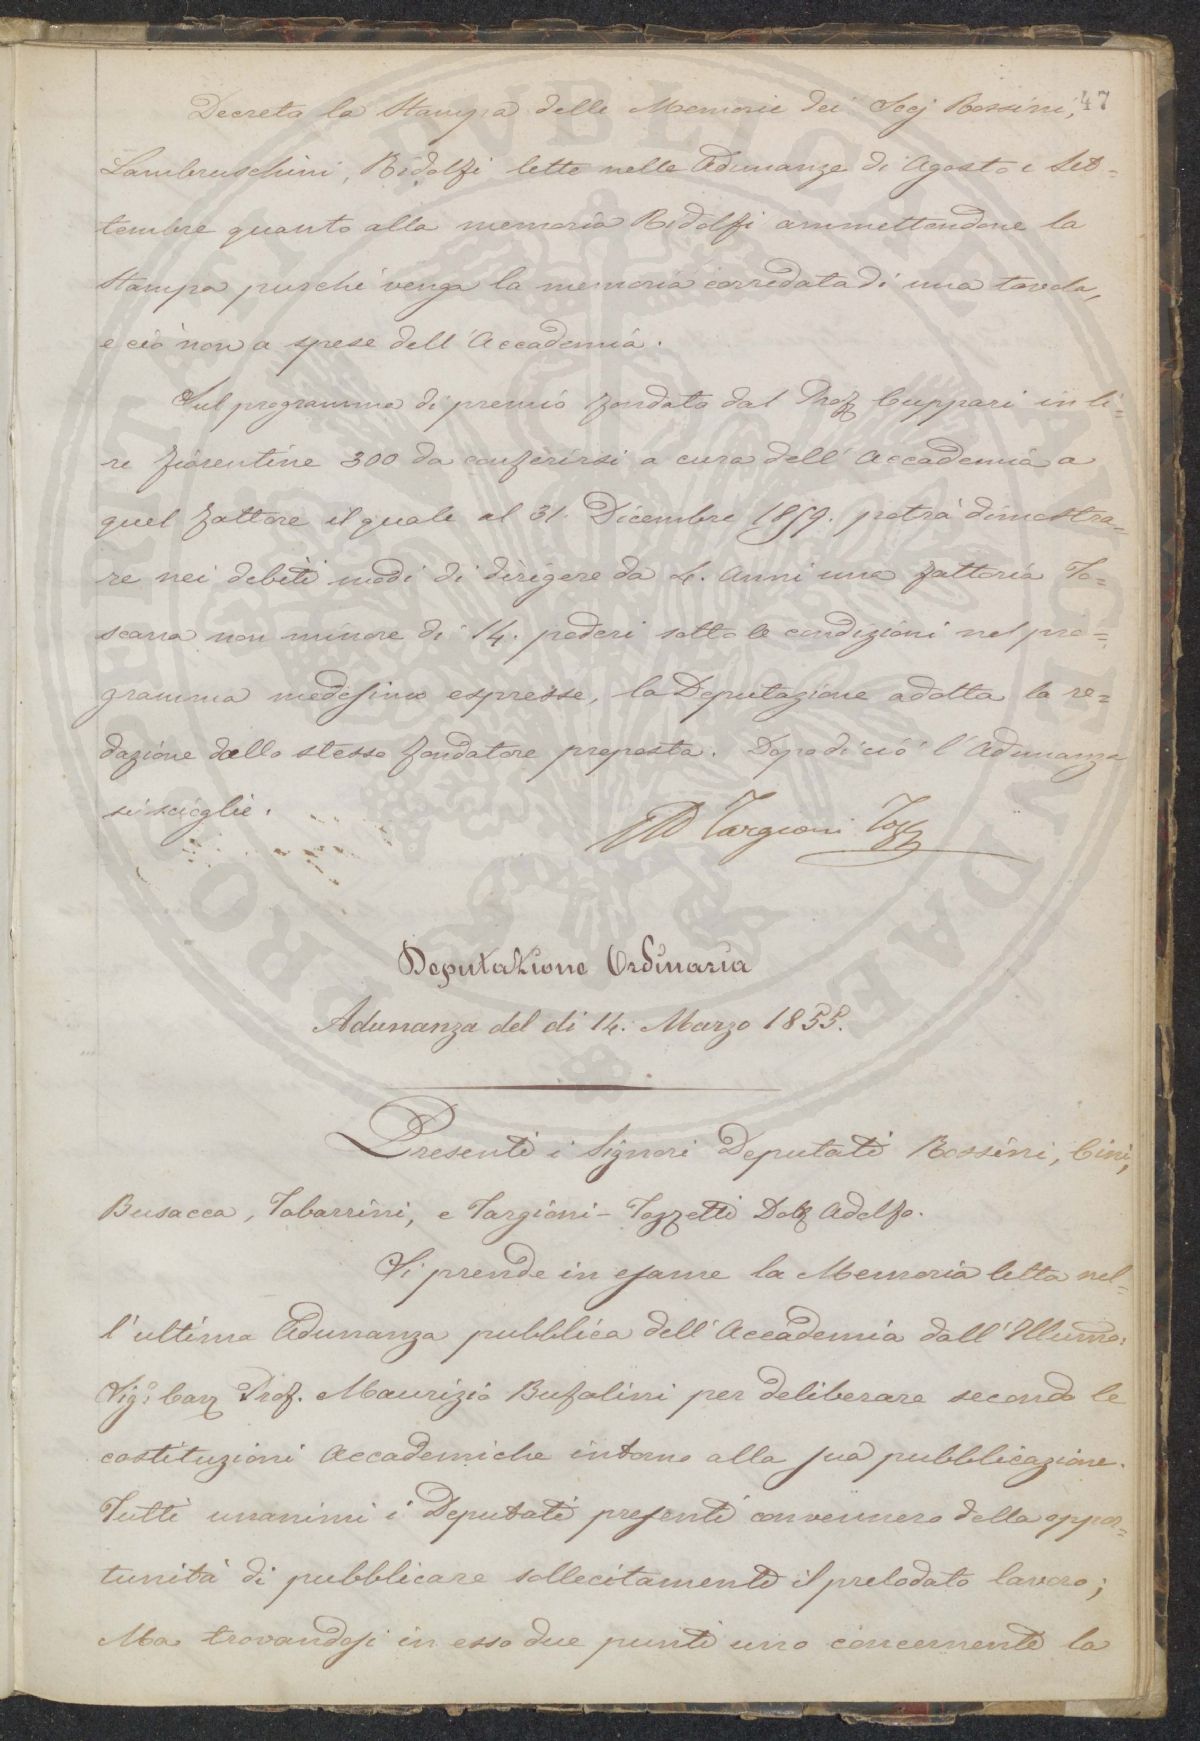 47
Decreta la Stampa delle Memorie dei Socj Rossini,
Lambruschini, Ridolfi lette nelle Adunanze di Agosto e Set-
tembre quanto alla memoria Ridolfi ammettendone la
Stampa purché venga la memoria corredata di una tavola,
e ciò non a spese dell'Accademia.
Sul programma di premio fondato dal Prof. Cuppari in li-
re fiorentine 300 da conferirsi a cura dell'Accademia a
quel fattore il quale al 31. Dicembre 1859. potrà dimostra-
re nei debiti modi di dirigere da 4. anni una fattoria To-
scana non minore di 14. poderi sotto le condizioni nel pro-
gramma medesimo espresse, la Deputazione adotta la re-
dazione dallo stesso fondatore proposta. Dopo di ciò l'Adunanza
si scioglie.
Targioni Tozz
Deputazione Ordinaria
Adunanza del dì 14. Marzo 1855.
Presenti i Signori Deputati Rossini, Cini,
Busacca, Tabarrini, e Targioni-Tozzetti Dott. Adolfo.
Si prende in esame la Memoria letta nel-
l'ultima Adunanza pubblica dell'Accademia dall'Illumo:
Sigr. Cav. Prof. Maurizio Bufalini per deliberare secondo le
costituzioni Accademiche intorno alla sua pubblicazione.
Tutti unanimi i Deputati presenti convennero della oppor-
tunità di pubblicare sollecitamente il prelodato lavoro;
Ma trovandosi in esso due punti uno concernente la
PUBLICAE